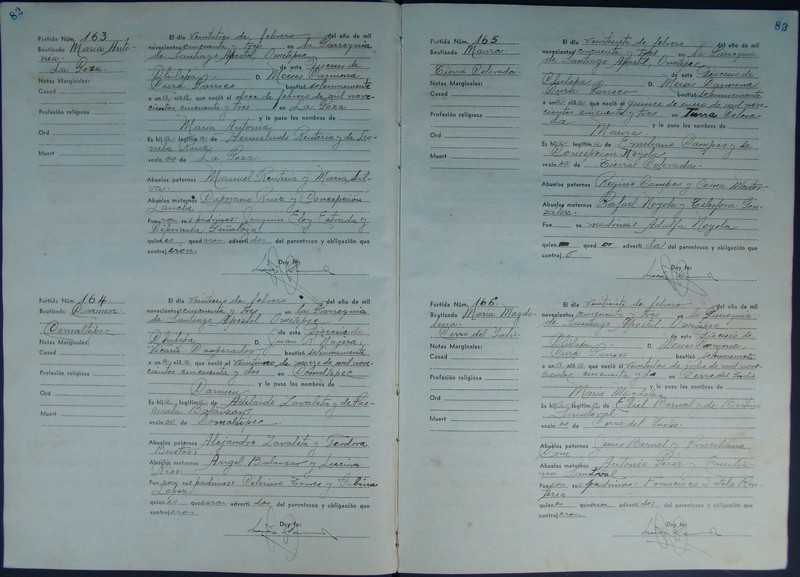 82
Partida Núm. 163
Bautizado María Antonia
La Poza
Notas Marginales:
Casad
Profesión religiosa
Ord
Muert
El día veintitres de febrero del año de mil
novecientos cincuenta y tres en la Parroquia
de Santiago Apostol Ometepec
de esta Diocesis de
Chilapa D. Moises Carmona
Cura Parroco bautizó solemnemente
a una niña que nació el once de febrero de mil nove-
cientos cincuenta y tres en La Poza
y le puso los nombres de
María Antonia
Es hija legítima de Hermelindo Renteria y de
Ruiz
vecinos de La Poza
Abuelos paternos Manuel Renteria y Maria Sil-
va
Abuelos maternos Cipriano Ruiz y Concepción
Fueron sus padrinos: Eloy Estrada y
Peñaloza
quienes quedaron advertidos del parentesco y obligación que
contrajeron.
Doy fe:
Partida Núm. 164
Bautizado Carmen
Comaltepec
Notas Marginales:
Casad
Profesión religiosa
Ord
Muert
El día veintitres de febrero del año de mil
novecientos cincuenta y tres en la Parroquia
de Santiago Apostol Ometepec
de esta Diocesis de
Chilapa D. Juan Najera
Vicario Cooperador bautizó solemnemente
a una niña que nació el de mil nove-
cientos cincuenta y dos en Comaltepec
y le puso los nombres de
Carmen
Es hija legítima de Adelaido Zavaleta y de Pas-
cuala Balanzar
vecinos de Comaltepec
Abuelos paternos Alejandro Zavaleta y Teodora
Bustos
Abuelos maternos Angel Balanzar y Lucina
Rico
Fueron sus padrinos: Ceferino Torres y Sabina
Lopez
quienes quedaron advertidos del parentesco y obligación que
contrajeron
Doy fe:
83
Partida Núm. 165
Bautizado Maura
Tierra Colorada
Notas Marginales:
Casad
Profesión religiosa
Ord
Muert
El día veintisiete de febrero del año de mil
novecientos cincuenta y tres en la Parroquia
de Santiago Apostol Ometepec
de esta Diocesis de
Chilapa D. Moises Carmona
Cura Parroco bautizó solemnemente
a una niña que nació el quince de enero de mil nove-
cientos cincuenta y tres en Tierra Colora-
da y le puso los nombres de
Maura
Es hija legítima de Emiliano Campos y de
Concepcion Noyola
vecinos de Tierra Colorada
Abuelos paternos Regino Campos y
Abuelos maternos Rafael Noyola y Gon-
zalez
Fue madrina: Adulfa Noyola
quien quedó advertida del parentesco y obligación que
contrajo
Doy fe:
Partida Núm. 166
Bautizado Maria Magda-
lena
Cerro del Indio
Notas Marginales:
Casad
Profesión religiosa
Ord
Muert
El día veintisiete de febrero del año de mil
novecientos cincuenta y tres en la Parroquia
de Santiago Apostol Ometepec
de esta Diocesis de
Chilapa D. Moises Carmona
Cura Parroco bautizó solemnemente
a una niña que nació el veintidos de julio de mil nove-
cientos cincuenta y en Cerro del Indio
y le puso los nombres de
Maria Magdalena
Es hija legítima de Eliel Bernal y de
Sandoval
vecinos de Cerro del Indio
Abuelos paternos Bernal y
Abuelos maternos Antonio Perez y
Sandoval
Fueron sus padrinos: Francisco Ren-
teria
quienes quedaron advertidos del parentesco y obligación que
contrajeron
Doy fe: